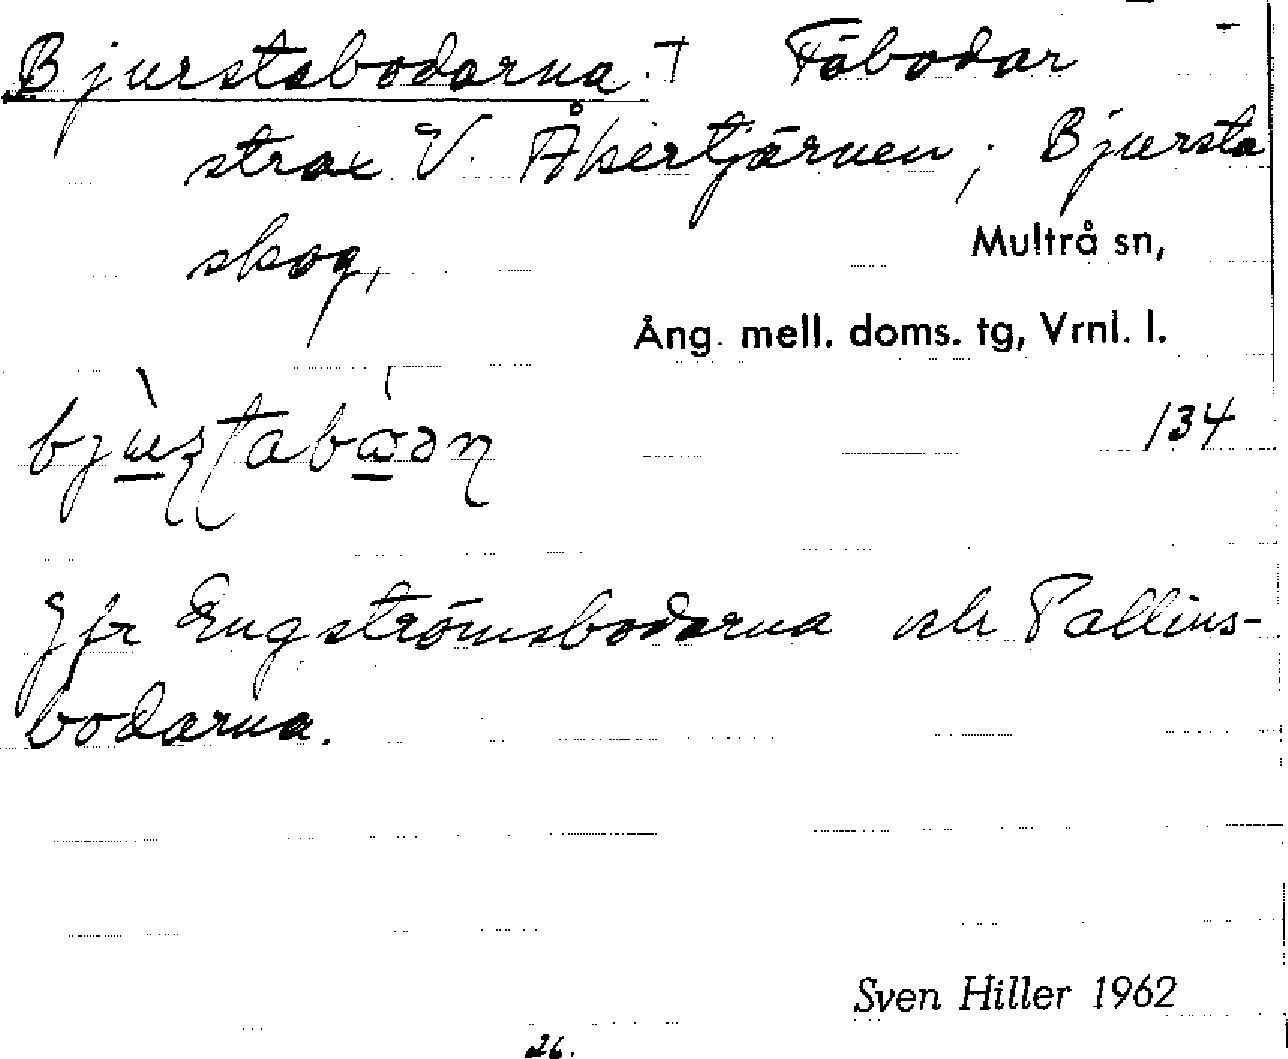 Bjurstabodarna. † Fäbodar
strax V. Åkertjärnen; Bjursta
skog,
Multrå sn,
Ång. mell. doms. tg, Vrnl. l.
134
Jfr Engströmsbodarna och Pallins-
bodarna.
Sven Hiller 1962
26.